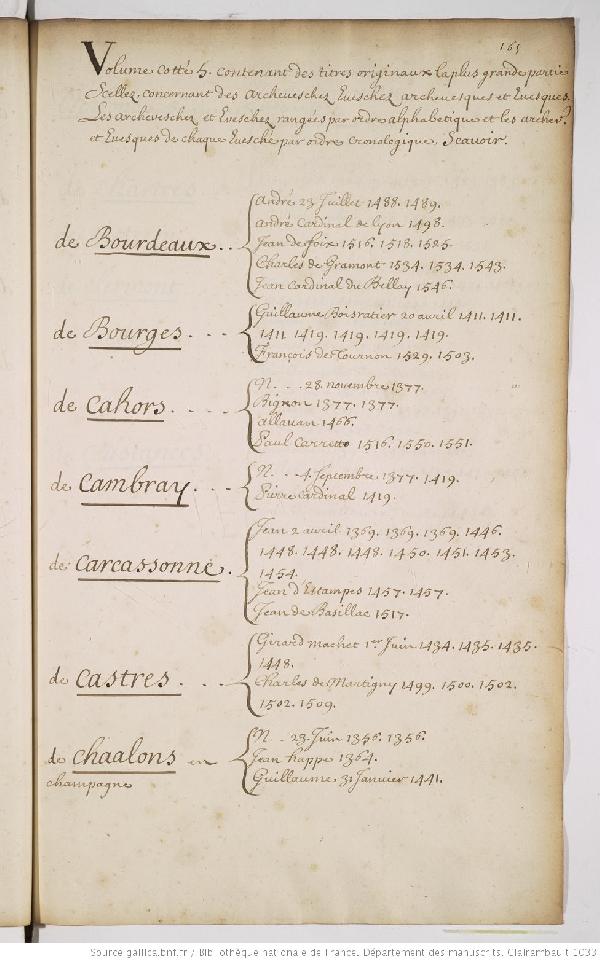 165
Volume cotté h. contenant des titres originaux la plus grande partie
Scellez, concernant des Archeveschez Eveschez archevesques et Evesques.
Les archeveschez et Eveschez rangées par ordre alphabetique et les archev.
et Evesques de chaque Evesché par ordre cronologique, Scavoir.
de Bourdeaux . .
André 23 Juillet 1488. 1489.
André Cardinal de lyon 1498.
Jean de foix 1516. 1518. 1525.
Charles de Gramont 1534. 1534. 1543.
Jean Cardinal du Bellay 1546.
de Bourges . . .
Guillaume Boisratier 20 avril 1411. 1411.
1411. 1419. 1419. 1419. 1419.
François de Tournon 1529. 1503.
de Cahors . . .
N. . . 28. novembre 1377.
Bignon 1377. 1377.
allavan 1466.
Paul Carretto 1516. 1550. 1551.
de Cambray . . .
N. . . 4. Septembre 1377. 1419.
Pierre Cardinal 1419.
de Carcassonne .
Jean 2 avril 1369. 1369. 1369. 1446.
1448. 1448. 1448. 1450. 1451. 1453.
1454.
Jean d'Estampes 1457. 1457.
Jean de Basillac 1517.
de Castres . . .
Girard machet 1er Juin 1434. 1435. 1435.
1448.
Charles de Martigny 1499. 1500. 1502.
1502. 1509.
de Chaalons en
champagne
N. . 23 Juin 1356. 1356.
Jean happe 1364.
Guillaume 31 Janvier 1441.
Source gallica.bnf.fr / Bibliothèque nationale de France. Département des manuscrits. Clairambault 1033